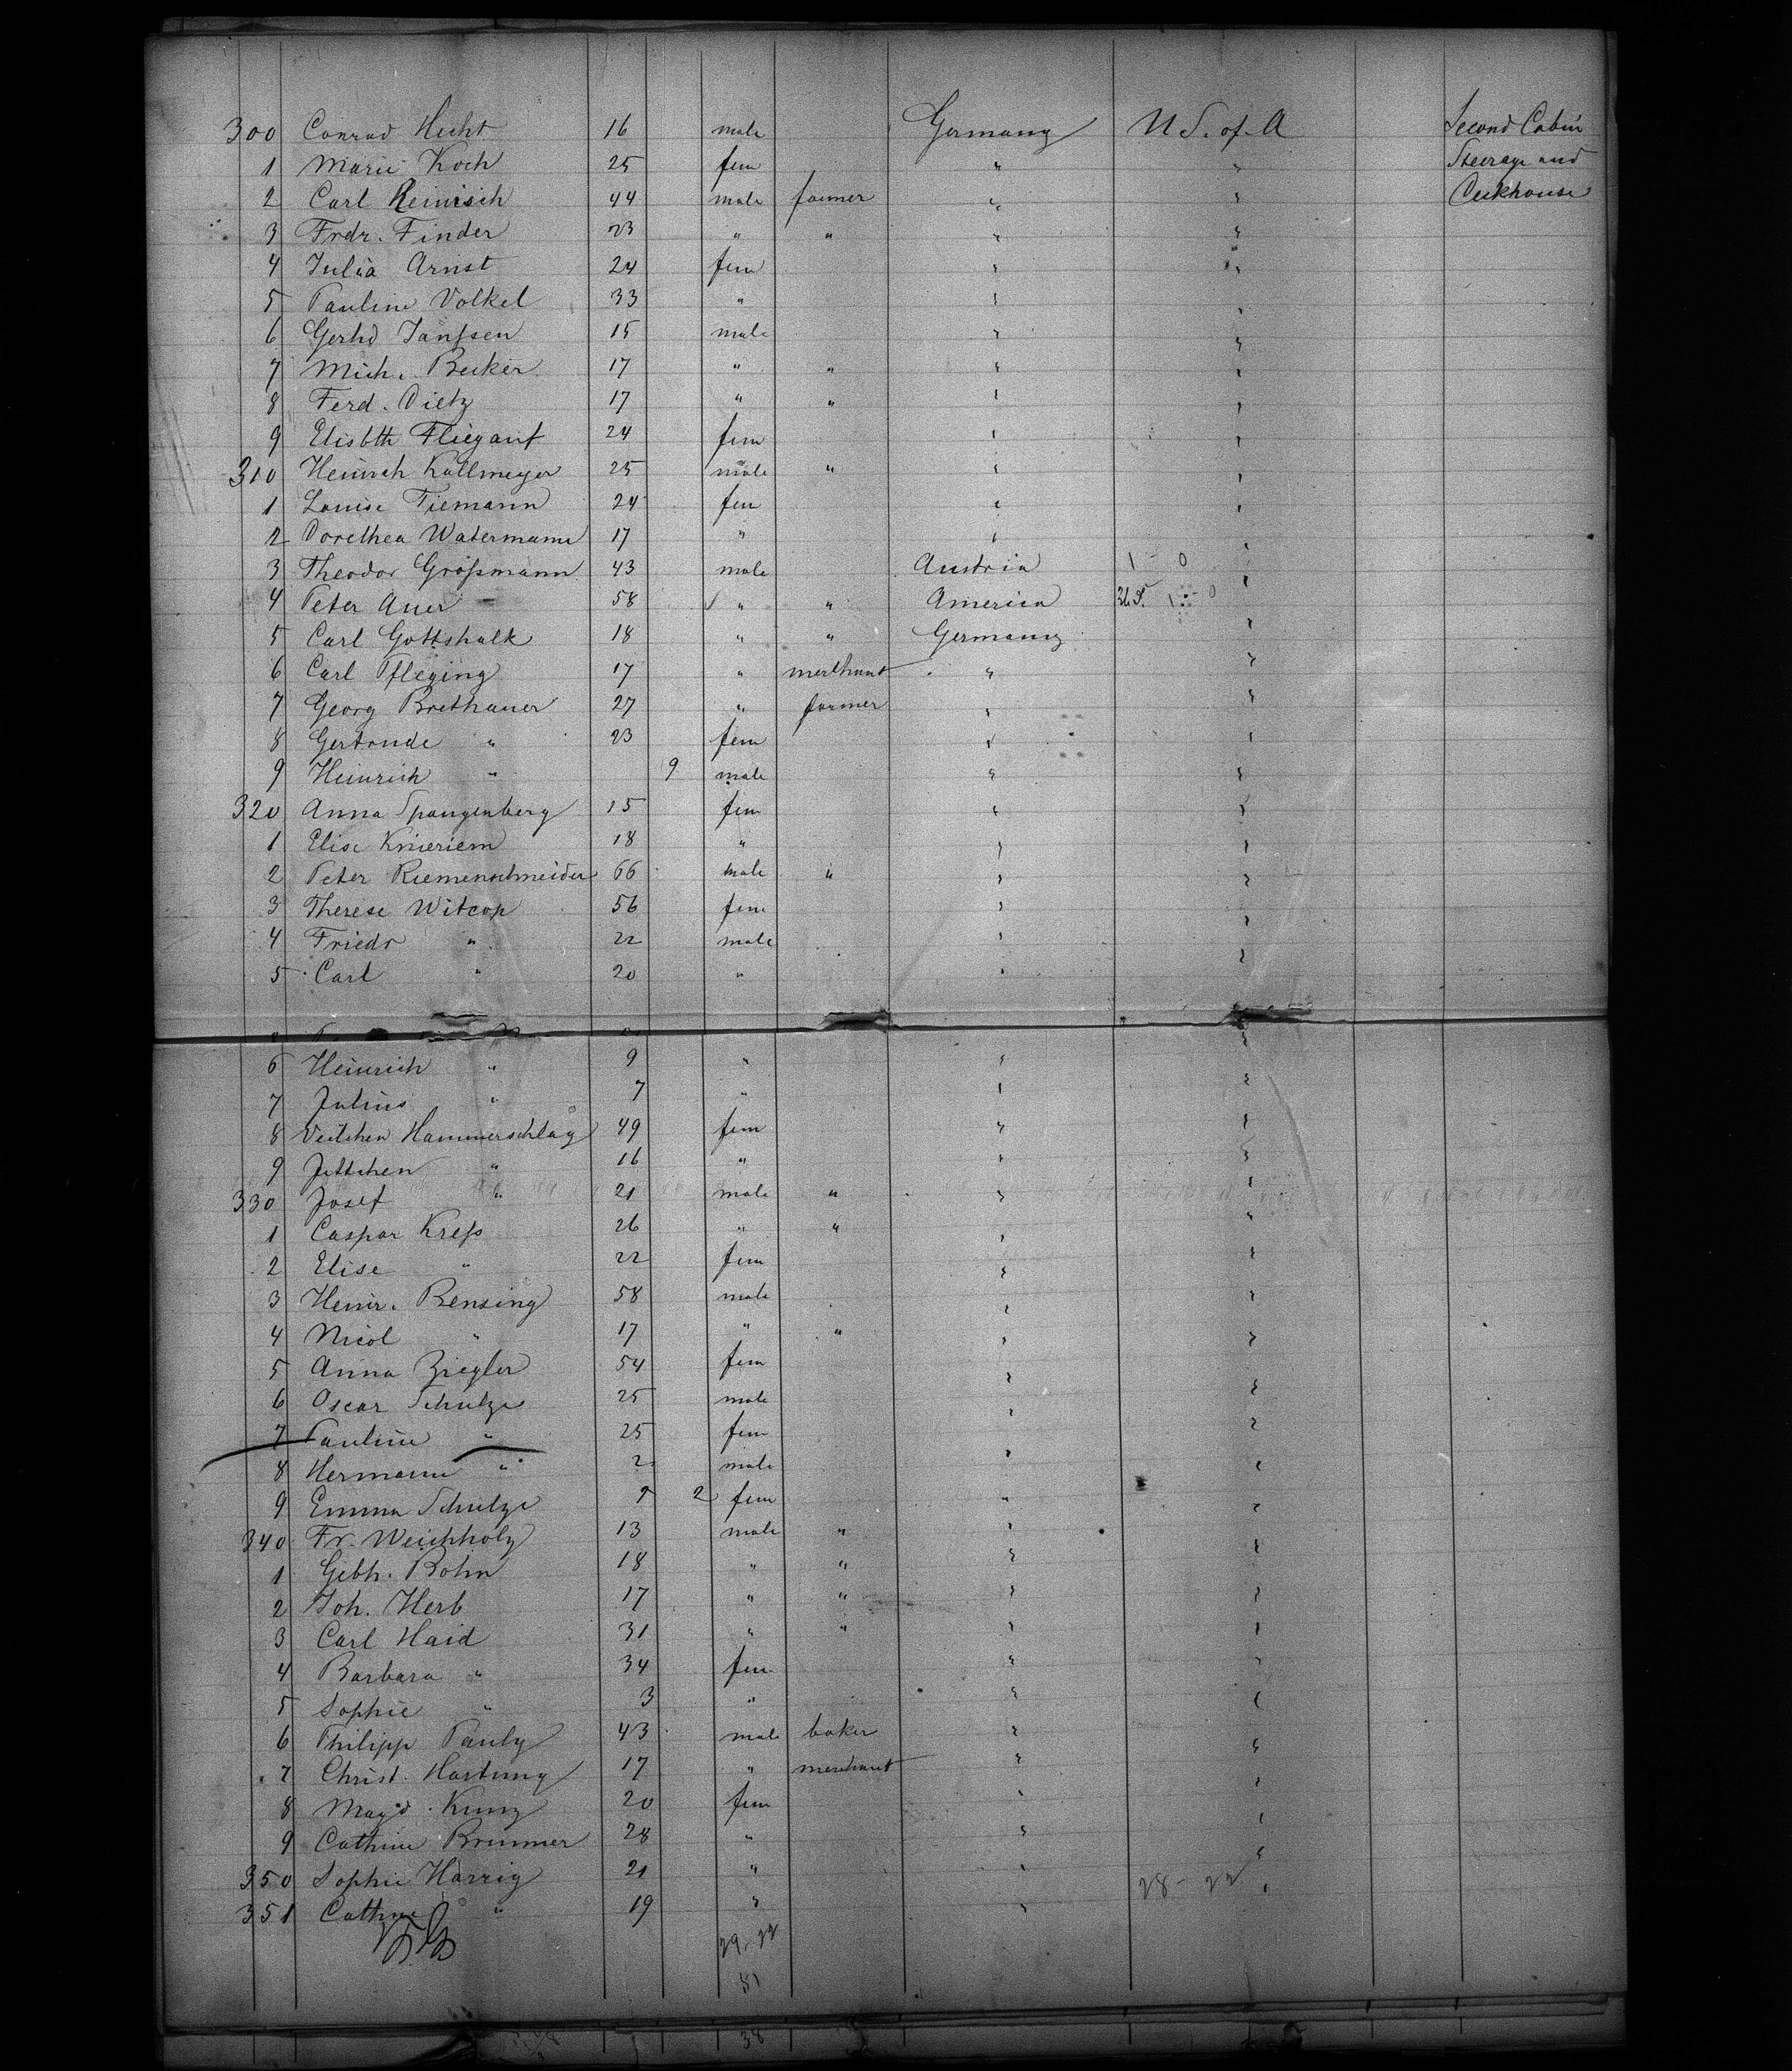 300 Conrad Hecht 16 male Germany U S. of A Second Cabin
1 Marie Koch 25 fem " " Steerage and
2 Carl Reinisch 44 male farmer " " Deckhouse
3 Frdr. Finder 23 " " " "
4 Julia Arnst 24 fem " "
5 Pauline Volkel 33 " " "
6 Gerhd Janssen 15 male " "
7 Mich. Becker 17 " " " "
8 Ferd. Dietz 17 " " " "
9 Elisbth Fliegauf 24 fem " "
310 Heinrch Kallmeyer 25 male " " "
1 Louise Tiemann 24 fem " "
2 Dorethea Watermann 17 " " "
3 Theodor Großmann 43 male Austria 1 - 0 "
4 Peter Auer 58 " " America U.S. 1 - 0 "
5 Carl Gottshalk 18 " " Germany "
6 Carl Pfleging 17 " merthant " "
7 Georg Brethauer 27 " farmer " "
8 Gertrude " 23 fem " "
9 Heinrich " 9 male " "
320 Anna Spangenberg 15 fem " "
1 Elise Knieriem 18 " " "
2 Peter Riemenschneider 66 male " " "
3 Therese Witcop 56 fem " "
4 Friedr " 22 male " "
5 Carl " 20 " " "
6 Heinrich " 9 " " "
7 Julius " 7 " " "
8 Veilchen Hammerschlag 49 fem " "
9 Jettchen " 16 " " "
330 Josef " 21 male " " "
1 Caspar Kreß 26 " " " "
2 Elise " 22 fem " "
3 Heinr. Bensing 58 male " "
4 Nicol " 17 " " " "
5 Anna Ziegler 54 fem " "
6 Oscar Schulze 25 male " "
7 Pauline " 25 fem " "
8 Hermann " 2 male " "
9 Emma Schulze 2 fem " "
340 Fr. Weichholz 13 male " " "
1 Gebh. Bohn 18 " " " "
2 Joh. Herb 17 " " " "
3 Carl Haid 31 " " " "
4 Barbara " 34 fem " "
5 Sophie " 3 " " "
6 Philipp Pauly 43 male baker " "
7 Christ. Hartung 17 " merchant " "
8 Magd. Kunz 20 fem " "
9 Cathrine Brummer 28 " " "
350 Sophie Harrig 21 " " 28 - 22 "
351 Cathrine " 19 " " "
29. 22
51
38